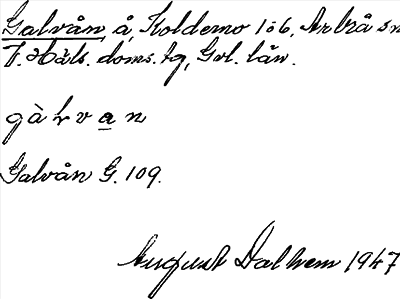 Galvån, å, Koldemo 1:6, Arbrå sn
V. Häls. doms. tg, Gvl. län.
gàlvan
Galvån G. 109.
August Dalhem 1947